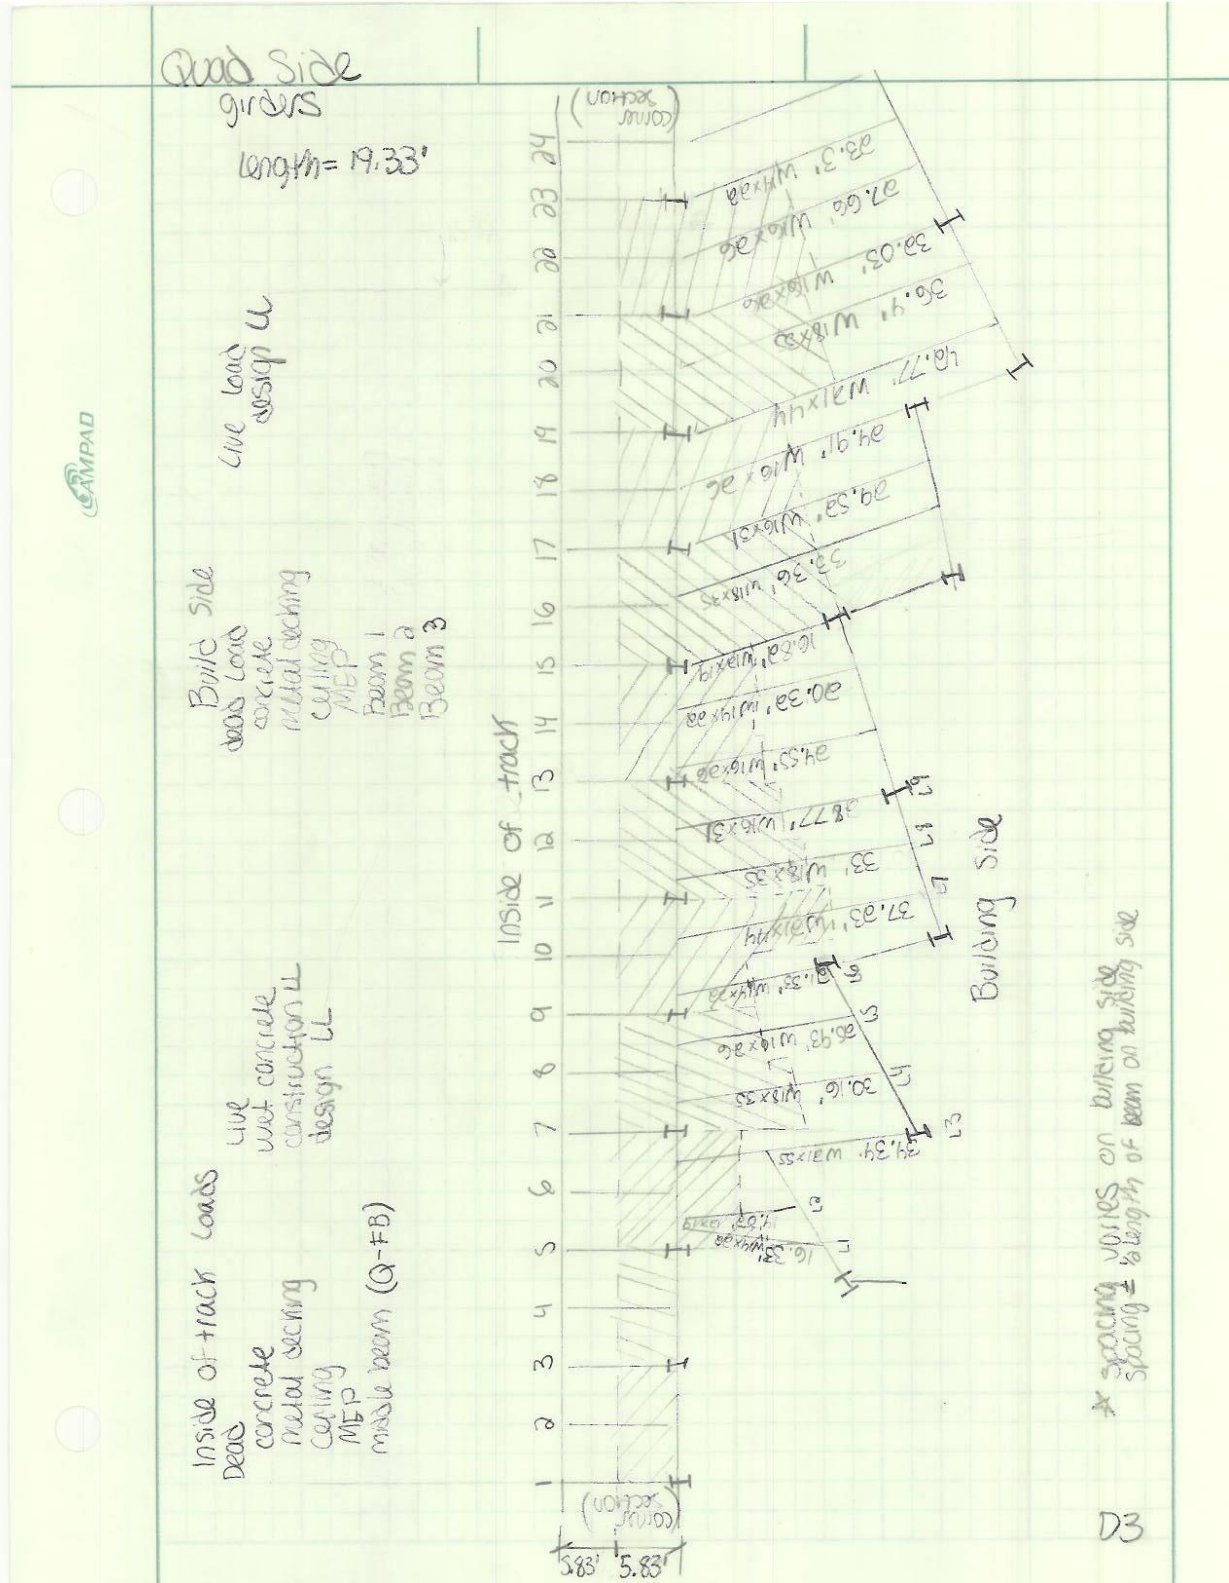 Quad Side
girders
Length = 19.33'
Live load
design LL
Build side
dead load
concrete
metal decking
ceiling
MEP
Beam 1
Beam 2
Beam 3
Live
wet concrete
construction LL
design LL
Inside of track Loads
Dead
concrete
metal decking
ceiling
MEP
middle beam (Q-FB)
Inside of track
(corner section)
1 2 3 4 5 6 7 8 9 10 11 12 13 14 15 16 17 18 19 20 21 22 23 24
(corner section)
5.83'
5.83'
16.33'
W14x22
34.34' W21x55
30.16' W18x35
26.93'
21.33' W14x22
37.23' W21x44
33' W18x35
W16x31
24.55' W16x26
20.32' W14x22
16.82' W12x19
32.36' W18x35
29.52' W16x31
24.91' W16x26
40.77' W21x44
36.4' W18x35
32.03' W16x26
27.66' W16x26
23.3' W14x22
L1
L2
L3
L4
L5
L6
L7
L8
L9
Building Side
* spacing varies on building side
spacing = 1/2 length of beam on building side
D3
CAMPAD